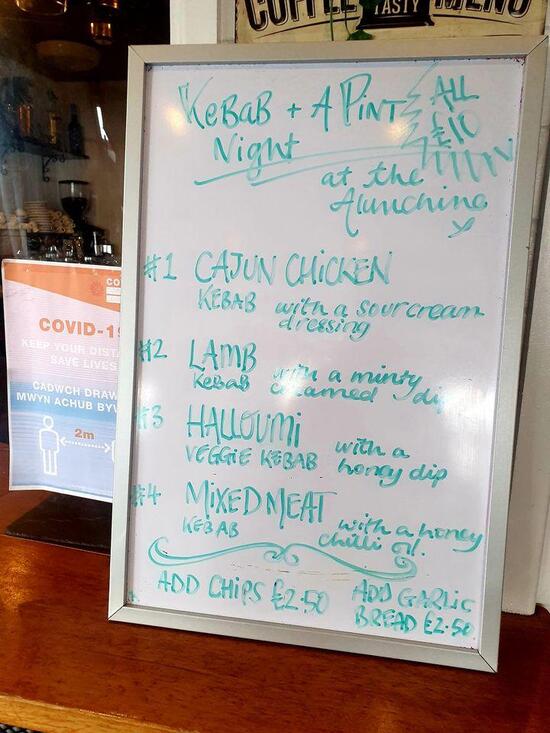 COFFEE TASTY MENU
KeBaB + A PiNT
Night
ALL
£10
at the
Alunching
#1 CAJUN CHiCKEN
KEBAB with a sour cream
dressing
#2 LAMB
Kebab with a minty
creamed dip
#3 HALLOUMi
VEGGiE KEBAB with a
honey dip
#4 MiXED MEAT
KEBAB with a honey
chilli oil.
ADD CHIPS £2.50
ADD GARLiC
BREAD £2.50
COVID-19
KEEP YOUR DISTA
SAVE LIVES
CADWCH DRAW
MWYN ACHUB BYW
2m